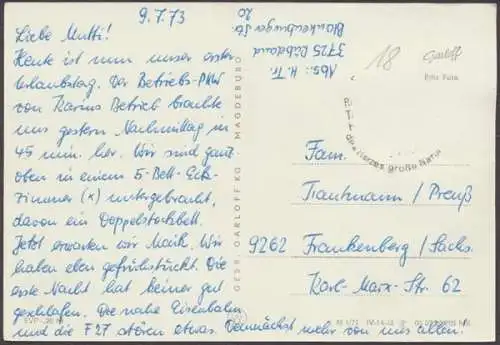 9.7.73
Liebe Mutti!
Heute ist nun unser erster
Urlaubstag. Der Betriebs-PKW
von Karins Betrieb brachte
uns gestern Nachmittag in
45 min. her. Wir sind ganz
oben in einem 5-Bett-Eck-
zimmer (x) untergebracht,
davon ein Doppelstockbett.
Jetzt erwarten wir Maik. Wir
haben eben gefrühstückt. Die
erste Nacht hat keiner gut
geschlafen. Die nahe Eisenbahn
und die F27 stören etwas. Demnächst mehr von uns allen!
Abs.: H. Tr.
3725 Rübeland
Blankenburger Str.
20
GEBR. GARLOFF KG. MAGDEBURG
18
Garloff
Echt Foto
des Harzes große Natur
Fam.
Trautmann / Preuß
9262 Frankenberg / Sachs.
Karl-Marx-Str. 62